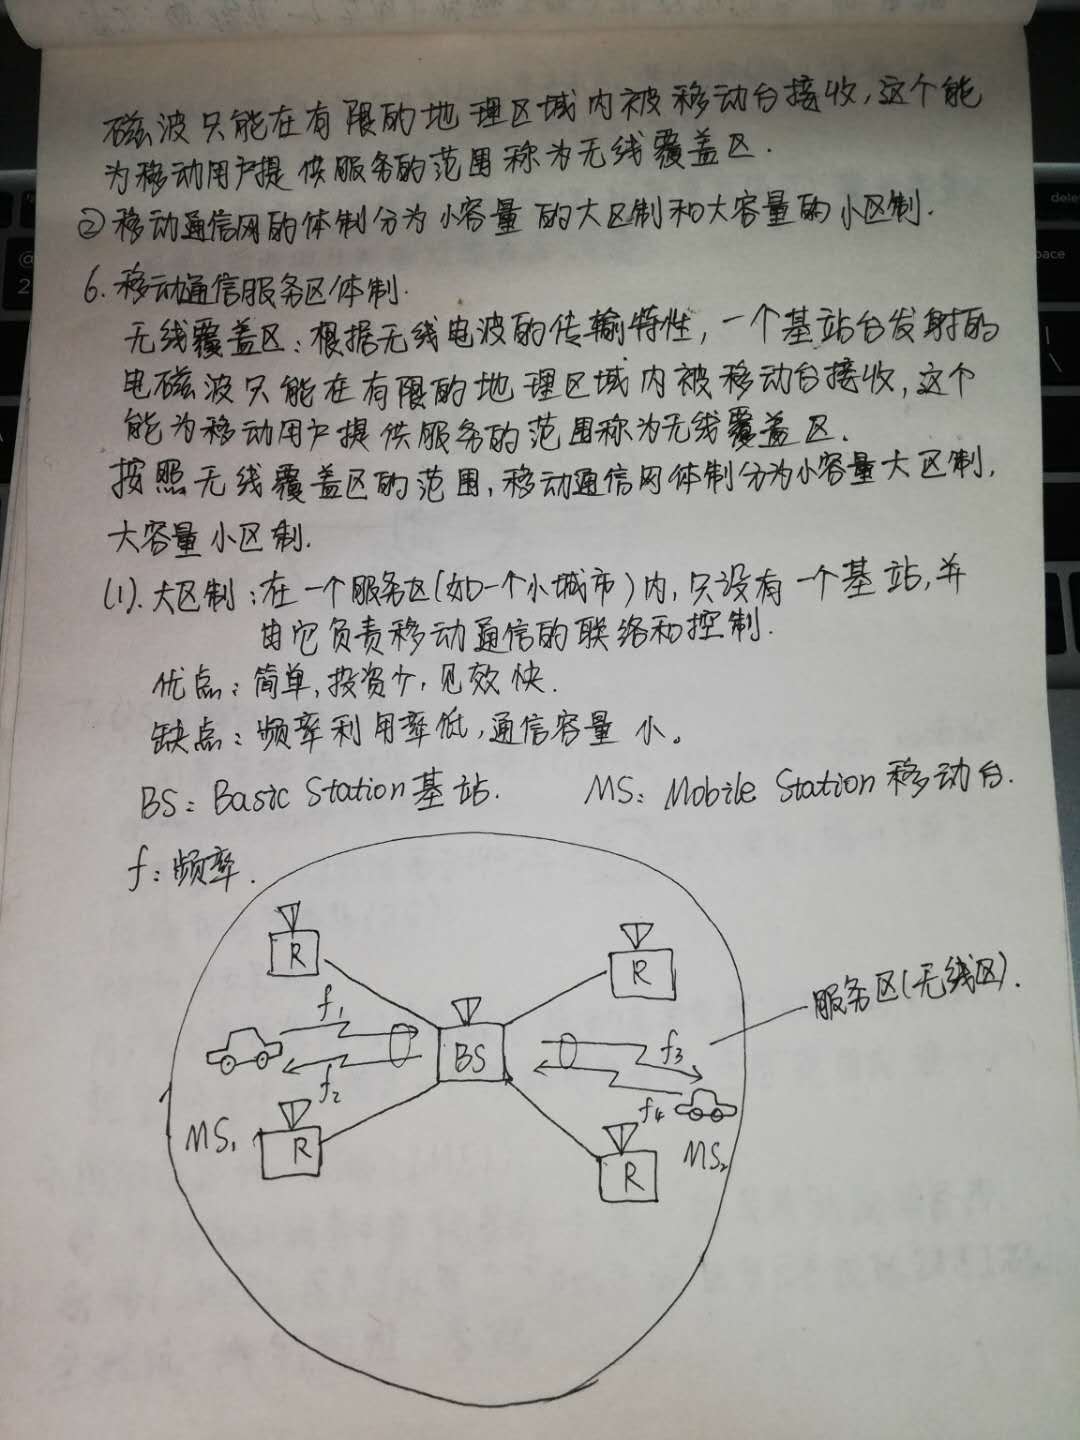 磁波只能在有限的地理区域内被移动台接收,这个能
为移动用户提供服务的范围称为无线覆盖区.
②移动通信网的体制分为小容量的大区制和大容量的小区制.
6.移动通信服务区体制.
无线覆盖区:根据无线电波的传输特性,一个基站台发射的
电磁波只能在有限的地理区域内被移动台接收,这个
能为移动用户提供服务的范围称为无线覆盖区.
按照无线覆盖区的范围,移动通信网体制分为小容量大区制,
大容量小区制.
(1).大区制:在一个服务区(如一个小城市)内,只设有一个基站,并
由它负责移动通信的联络和控制.
优点:简单,投资少,见效快.
缺点:频率利用率低,通信容量小。
BS:Basic Station基站. MS:Mobile Station移动台.
f:频率.
R
R
服务区(无线区).
f1
BS
f3
f2
f4
MS1
R
R
MS2